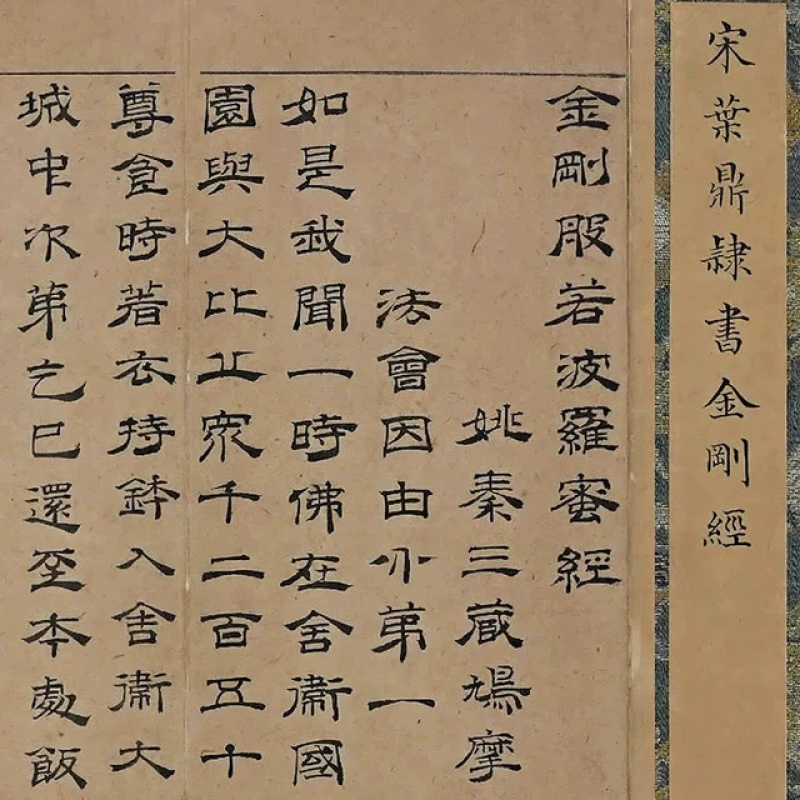 宋葉鼎隸書金剛經
金剛般若波羅蜜經
姚秦三藏鳩摩
法會因由分第一
如是我聞一時佛在舍衛國
園與大比丘眾千二百五十
尊食時著衣持鉢入舍衛大
城中次第乞已還至本處飯